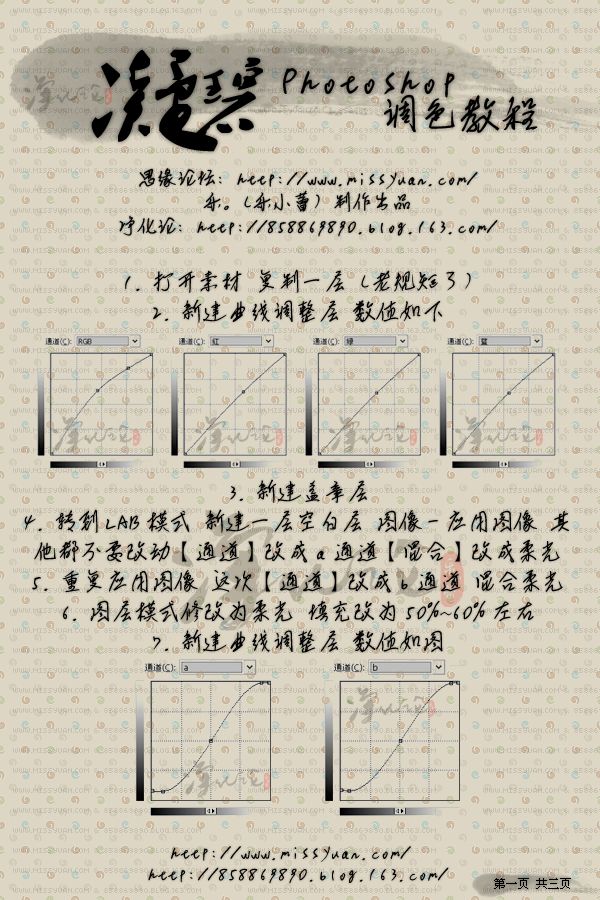 Photoshop
调色教程
思缘论坛：http://www.missyuan.com/
制作出品
http://858869890.blog.163.com/
1. 打开素材 复制一层（老规矩了）
2. 新建曲线调整层 数值如下
通道(C): RGB 通道(C): 红 通道(C): 绿 通道(C): 蓝
3. 新建盖章层
4. 转到LAB模式 新建一层空白层 图像－应用图像 其
他都不要改动【通道】改成a通道【混合】改成柔光
5. 重复应用图像 这次【通道】改成b通道 混合柔光
6. 图层模式修改为柔光 填充改为50%~60%左右
7. 新建曲线调整层 数值如图
通道(C): a 通道(C): b
http://www.missyuan.com/
http://858869890.blog.163.com/
第一页 共三页